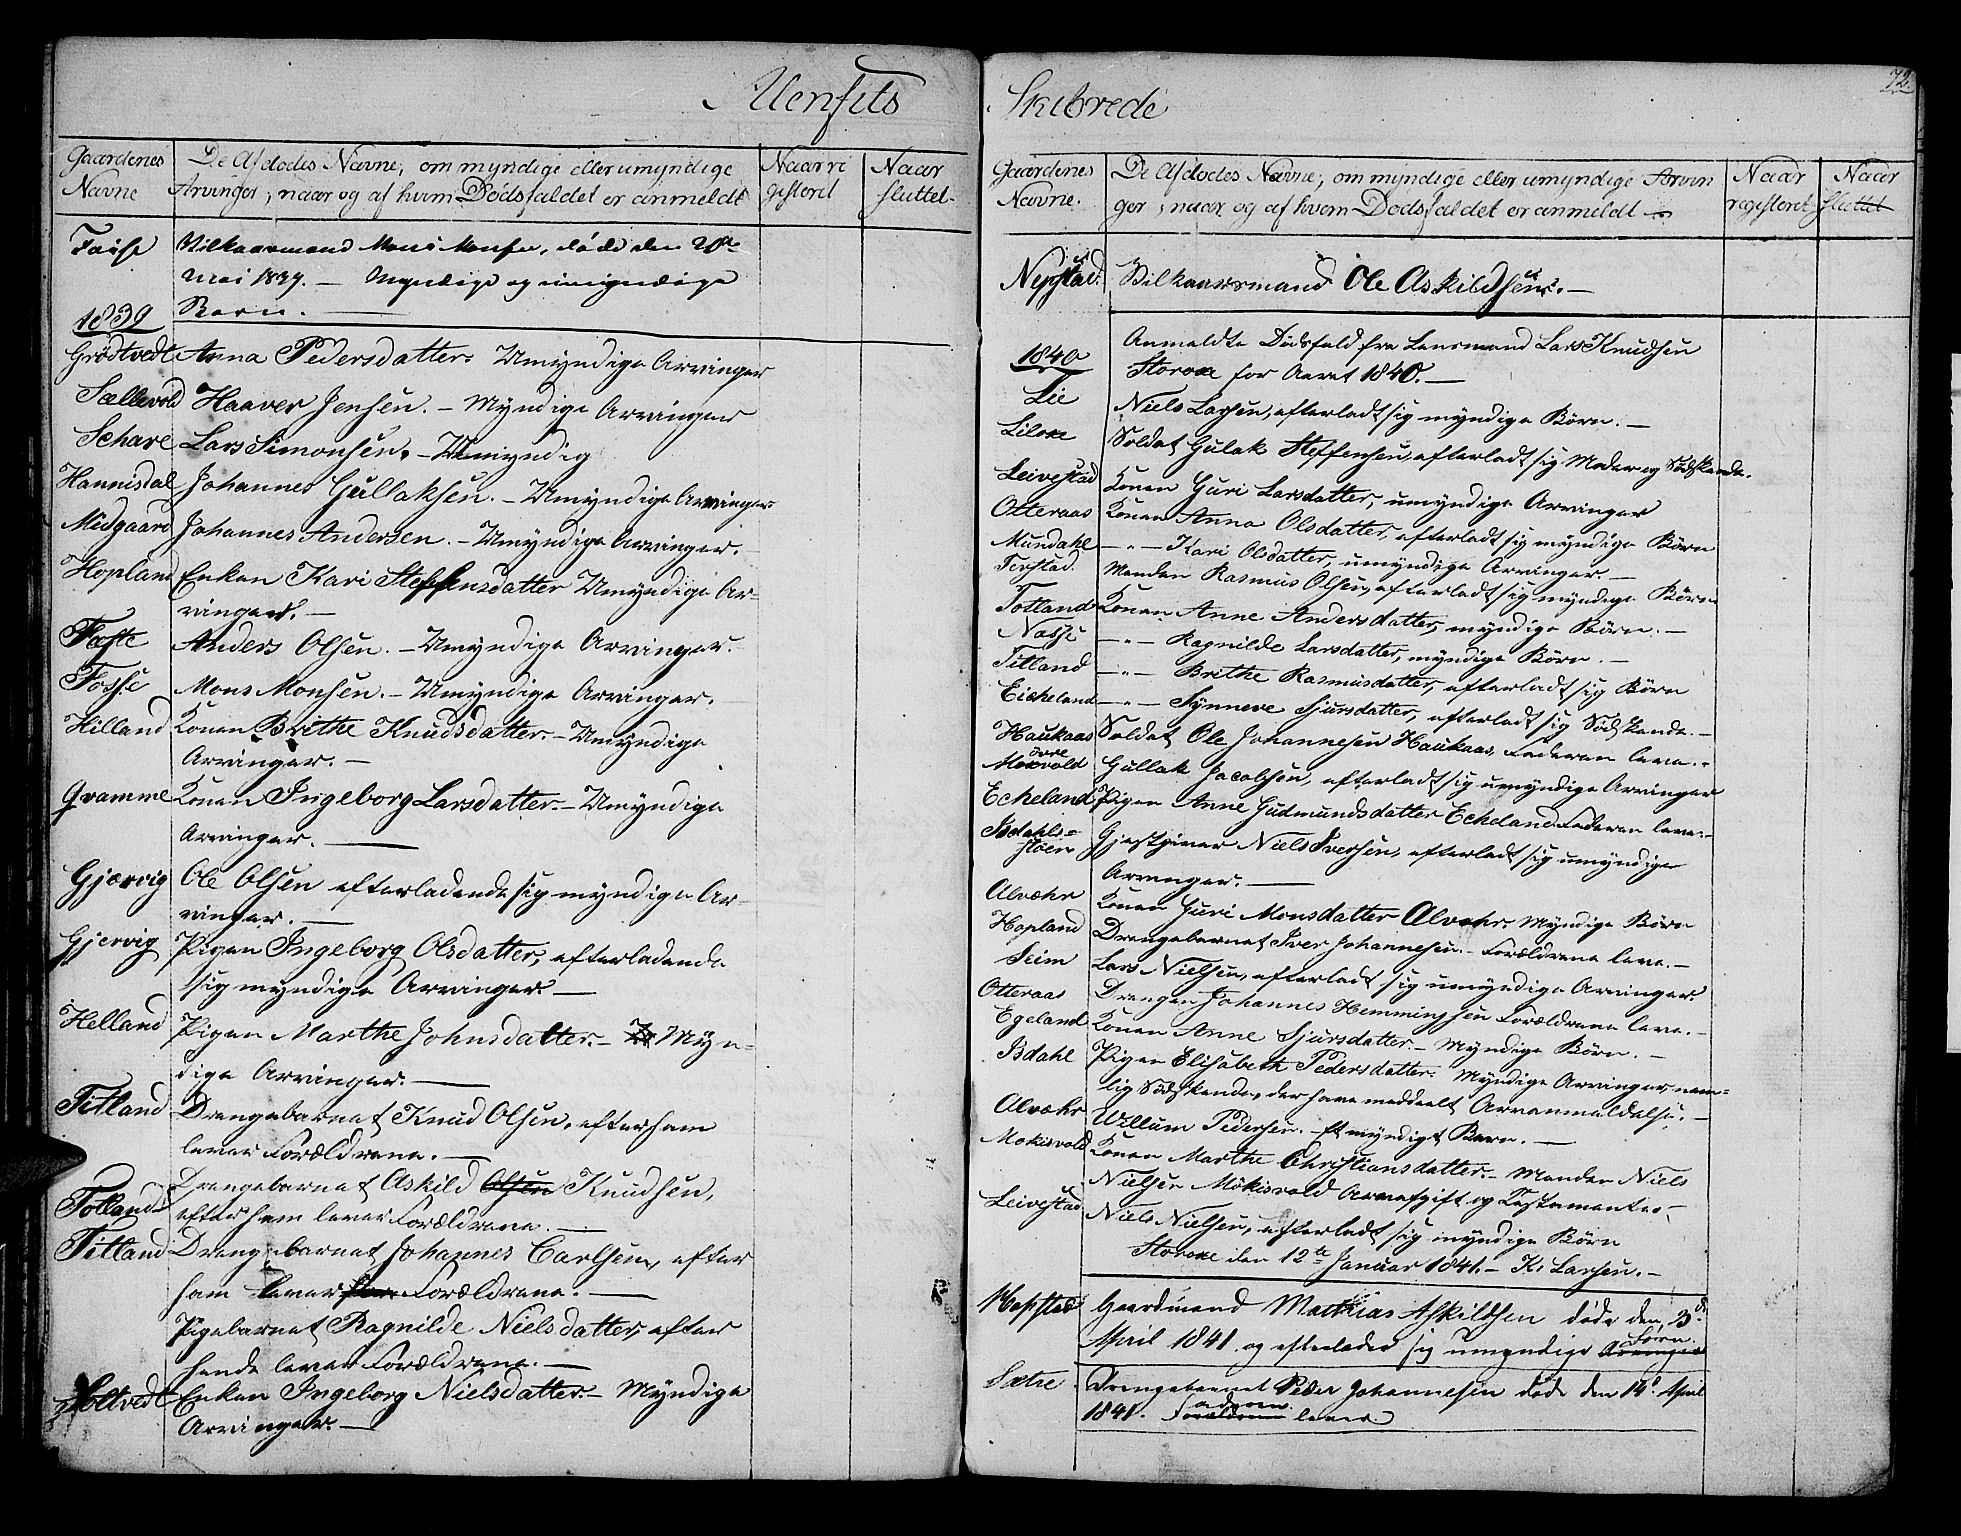 Alenfits
Gaardenes
Navne
De Afdødes Navne, om myndige eller umyndige
Arvinger, naar og af hvem Dødsfaldet er anmeldt
Naar re
gisteret
Naar
sluttet.
Fosse
Vilkaarsmand Mons Monsen, døde den
Mai 1839. — Myndige og umyndige
Børn. —
1839
Grödtvedt Anna Pedersdatter. Umyndige Arvinger
Sællevold Haaver Jensen. — Myndige Arvinger
Schare Lars Simonsen. — Umyndig
Hannisdal Johannes Gullaksen. — Umyndige Arvinger
Midgaard Johannes Andersen. — Umyndige Arvinger.
Hopland Enken Kari Steffensdatter Umyndige Ar=
vinger. —
Fæste Anders Olsen. — Umyndige Arvinger.
Fosse Mons Monsen. — Umyndige Arvinger.
Hilland Konen Brithe Knudsdatter. — Umyndige
Arvinger. —
Qvamme Konen Ingeborg Larsdatter. — Umyndige
Arvinger. —
Gjærvig Ole Olsen efterladende sig myndige Ar=
vinger. —
Gjervig Pigen Ingeborg Olsdatter, efterladende
sig myndige Arvinger. —
Helland Pigen Marthe Johnsdatter. — Myn=
dige Arvinger. —
Titland Drengebarnet Knud Olsen, efter ham
lever Forældrene. —
Totland Drengebarnet Askild Olsen Knudsen,
efter ham lever Forældrene. —
Titland Drengebarnet Johannes Carlsen, efter
ham lever Forældrene. —
Pigebarnet Ragnilde Nielsdatter, efter
hende lever Forældrene. —
Enken Ingeborg Nielsdatter. — Myndige
Arvinger. —
72.
Skibrede
Gaardenes
Navne.
De Afdødes Navne, om myndige eller umyndige Arvin
ger, naar og af hvem Dødsfaldet er anmeldt
Naar
registeret
Naar
sluttet
Vilkaarsmand Ole Askildsen. —
1840
Anmeldte Dødsfald fra Lensmand Lars Knudsen
Storoxe for Aaret 1840. —
Lie Niels Larsen, efterladt sig myndige Børn. —
Liloxe Soldat Gulak Steffensen, efterladt sig Moder og Sødskende.
Leivestad Konen Guri Larsdatter, umyndige Arvinger
Otteraas Konen Anna Olsdatter, efterladt sig myndige Børn
Mundahl — " — Kari Olsdatter, umyndige Arvinger. —
Manden Rasmus Olsen, efterladt sig myndige Børn
Totland Konen Anne Andersdatter, myndige Børn. —
Næsse — " — Ragnilde Larsdatter, myndige Børn. —
Titland — " — Brithe Rasmusdatter, efterladt sig Børn
Eicheland — " — Synneve Sjursdatter, efterladt sig Sødskende. —
Haukaas Soldat Ole Johannesen Haukaas, Faderen lever. —
øvre
Moxvold Gullak Jacobsen, efterladt sig umyndige Arvinger
Echeland Pigen Anne Gudmundsdatter Echeland Faderen lever. —
Isdahls=
støen Gjestgiver Niels Iversen, efterladt sig umyndige
Arvinger. —
Alvæhr Konen Guri Monsdatter Alvæhr. Myndige Børn
Hopland Drengebarnet Iver Johannesen. — Forældrene leve. —
Seim Lars Nielsen, efterladt sig umyndige Arvinger.
Otteraas Drengen Johannes Hemmingsen Forældrene leve. —
Egeland Konen Anne Sjursdatter. — Myndige Børn. —
Isdahl Pigen Elisabeth Pedersdatter. Myndige Arvinger, nem=
lig Sødskende, der have meddeelt Arveanmeldelse. —
Alvæhr Willum Pedersen. — Et myndigt Barn. —
Mokisvold Konen Marthe Christiansdatter. — Manden Niels
Nielsen Mokisvold Arveafgift og Testamente. —
Leivestad Niels Nielsen, efterladt sig myndige Børn
Storoxe den 12te Januar 1841. — K. Larsen. —
Hopstad Gaardmand Mathias Askildsen døde den 3d.
April 1841. og efterlader sig umyndige Arvinger Børn.
Sætre Drengebarnet Peder Johannesen døde den 14d. April
1841. Forældrene Faderen lever